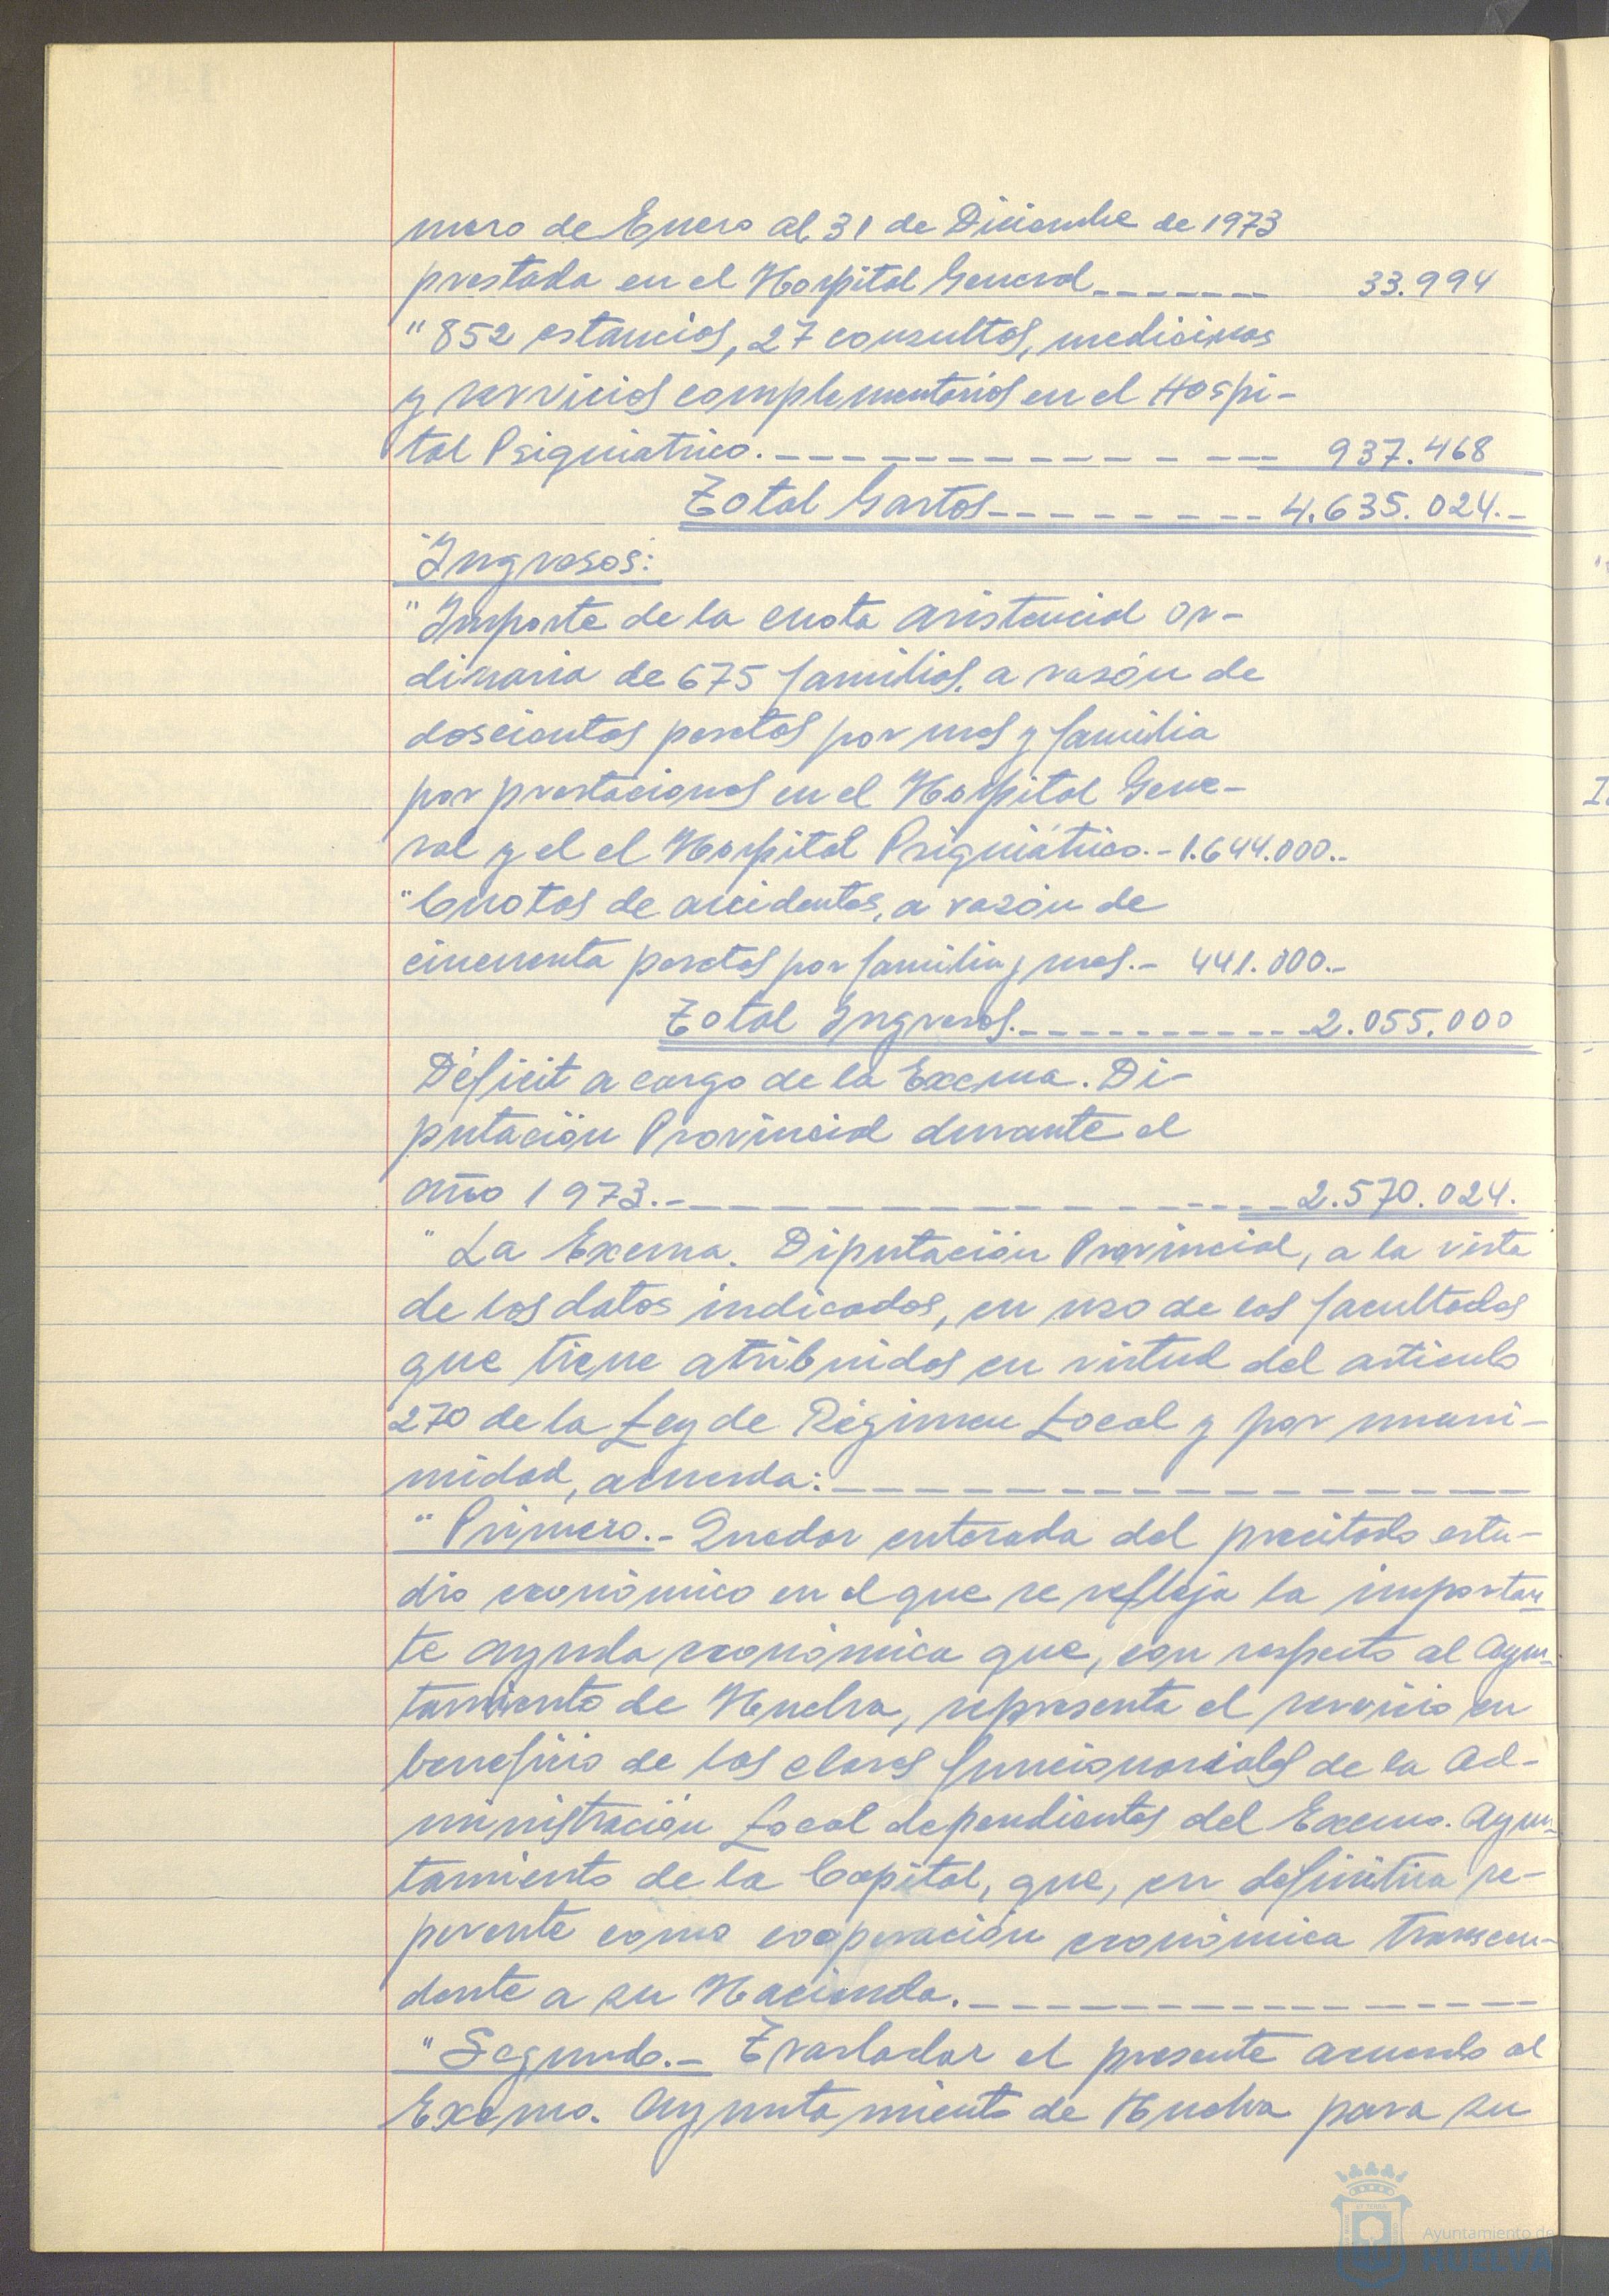 mero de Enero al 31 de Diciembre de 1973
prestada en el Hospital General_______ 33.994
"852 estancias, 27 consultas, medicinas
y servicios complementarios en el Hospi-
tal Psiquiatrico.______________ 937.468
Total Gastos_________ 4.635.024.-
"Ingresos":
"Importe de la cuota asistencial or-
dinaria de 675 familias, a razón de
doscientas pesetas por mes y familia
por prestaciones en el Hospital Gene-
ral y el el Hospital Psiquiátrico.- 1.644.000.-
"Cuotas de accidentes, a razón de
cincuenta pesetas por familia y mes.- 441.000.-
Total Ingresos.___________2.055.000
Déficit a cargo de la Excma. Di-
putación Provincial durante el
año 1973.-______________2.570.024.
"La Excma. Diputación Provincial, a la vista
de los datos indicados, en uso de las facultades
que tiene atribuidas en virtud del articulo
270 de la Ley de Régimen Local y por unani-
midad, acuerda:______________
"Primero.- Quedar enterada del precitado estu-
dio económico en el que se refleja la importan-
te ayuda económica que, con respecto al Ayun-
tamiento de Huelva, representa el servicio en
beneficio de las clases funcionariales de la Ad-
ministración Local dependientes del Excmo. Ayun-
tamiento de la Capital, que, en definitiva re-
percute como cooperación económica transcen-
dente a su Hacienda.______________
"Segundo.- Trasladar el presente acuerdo al
Excmo. Ayuntamiento de Huelva para su
Ayuntamiento de
HUELVA